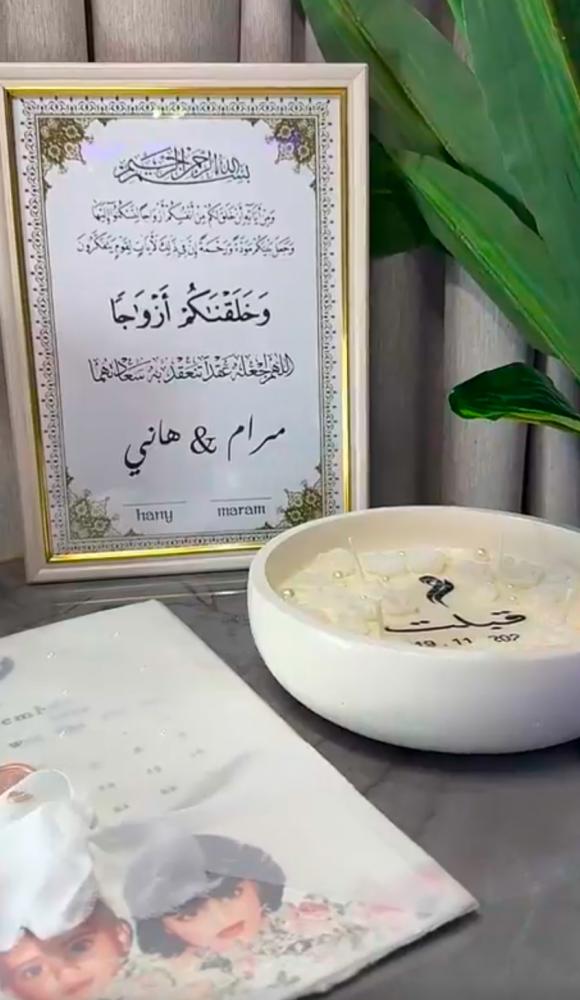 بسم الله الرحمن الرحيم
وَمِنْ آيَاتِهِ أَنْ خَلَقَ لَكُم مِّنْ أَنفُسِكُمْ أَزْوَاجًا لِّتَسْكُنُوا إِلَيْهَا
وَجَعَلَ بَيْنَكُم مَّوَدَّةً وَرَحْمَةً إِنَّ فِي ذَٰلِكَ لَآيَاتٍ لِّقَوْمٍ يَتَفَكَّرُونَ
وَخَلَقْنَاكُمْ أَزْوَاجًا
اللهم اجعله عقداً تنعقد به سعادتهما
مرام & هاني
hany maram
قبلت
19.11.202